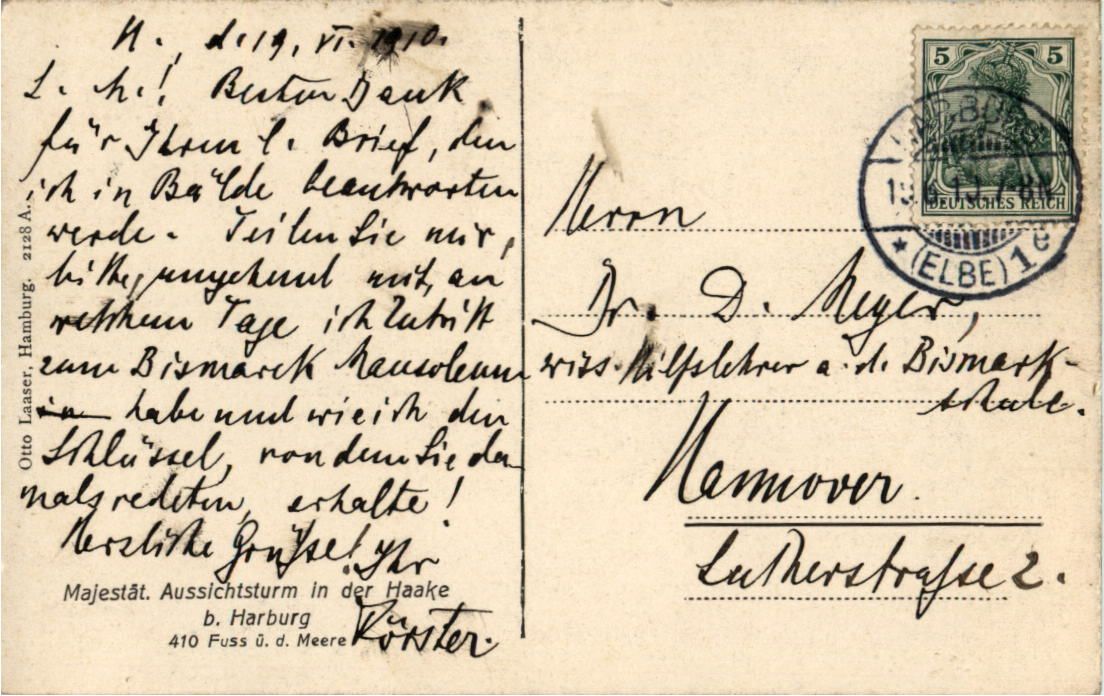 H., d. 19. VI. 1910.
L. M.! Besten Dank
für Ihren l. Brief, den
ich in Bälde beantworten
werde. Teilen Sie mir,
bitte, umgehend mit, an
welchem Tage ich Zutritt
zum Bismarck Mausoleum
habe und wie ich den
Schlüssel, von dem Sie da-
mals redeten, erhalte!
Herzliche Grüsse! Ihr
Förster.
Majestät. Aussichtsturm in der Haake
b. Harburg
410 Fuss ü. d. Meere
Otto Laaser, Hamburg. 2128 A.
5 5
DEUTSCHES REICH
HARBURG
10 7-8N
* (ELBE) 1e
Herrn
Dr. D. Meyer,
wiss. Hilfslehrer a. d. Bismark-
schule.
Hannover.
Lutherstraße 2.